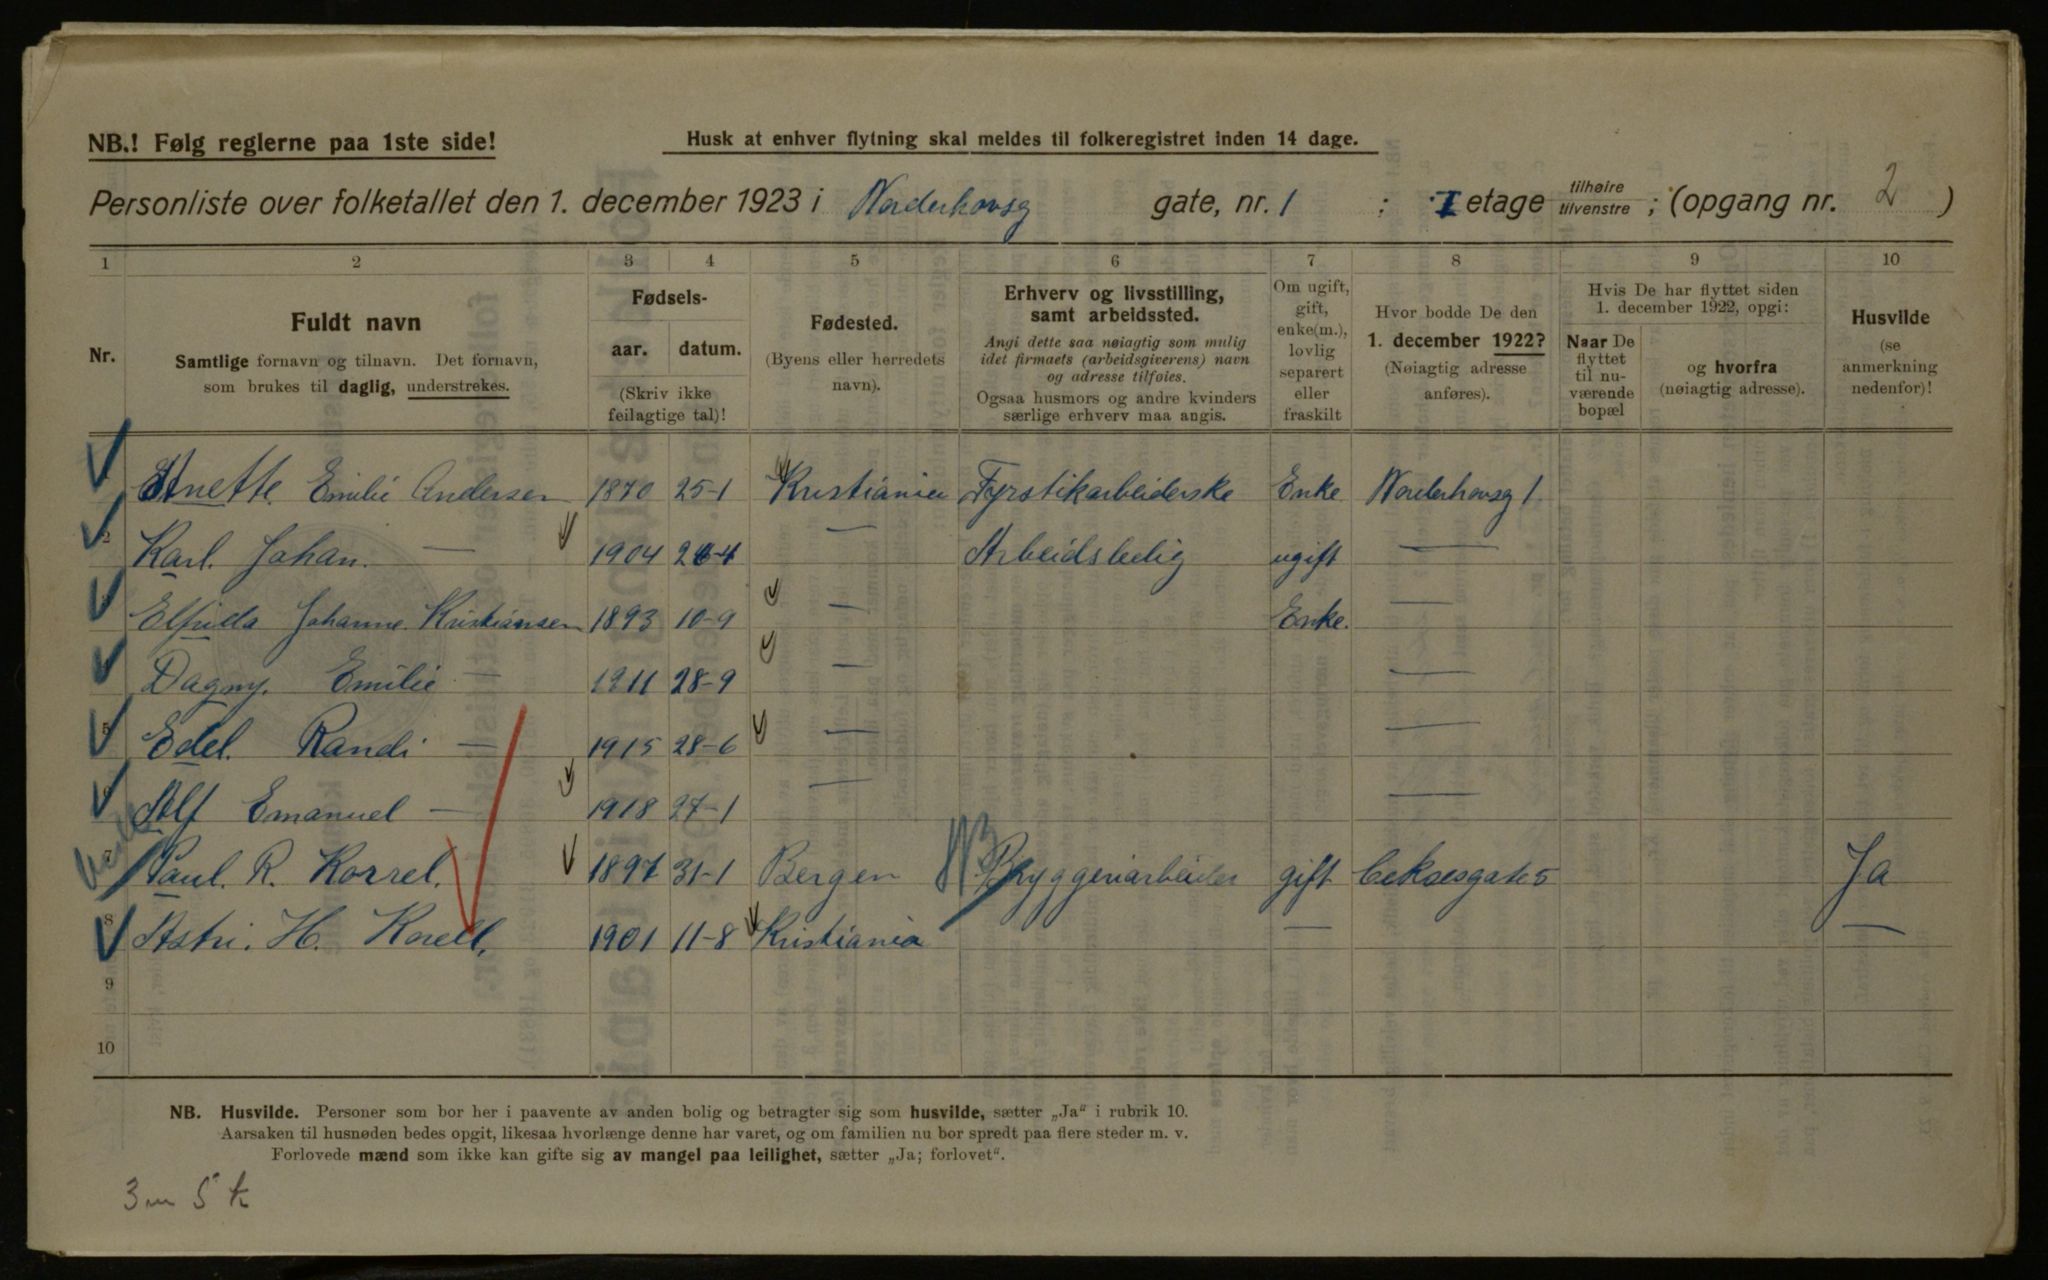 NB.! Følg reglerne paa 1ste side!
Husk at enhver flytning skal meldes til folkeregistret inden 14 dage.
Personliste over folketallet den 1. december 1923 i Norderhovsg gate, nr. 1 ; I etage tilhøire tilvenstre ; (opgang nr. 2 )
1 2 3 4 5 6 7 8 9 10
Nr.
Fuldt navn
Samtlige fornavn og tilnavn. Det fornavn,
som brukes til daglig, understrekes.
Fødsels-
aar. datum.
(Skriv ikke
feilagtige tal)!
Fødested.
(Byens eller herredets
navn).
Erhverv og livsstilling,
samt arbeidssted.
Angi dette saa nøiagtig som mulig
idet firmaets (arbeidsgiverens) navn
og adresse tilføies.
Ogsaa husmors og andre kvinders
særlige erhverv maa angis.
Om ugift,
gift,
enke(m.),
lovlig
separert
eller
fraskilt
Hvor bodde De den
1. december 1922?
(Nøiagtig adresse
anføres).
Hvis De har flyttet siden
1. december 1922, opgi:
Naar De
flyttet
til nu-
værende
bopæl
og hvorfra
(nøiagtig adresse).
Husvilde
(se
anmerkning
nedenfor)!
Anette Emilie Andersen 1870 25-1 Kristiania Fyrstikarbeiderske Enke Norderhovsg 1.
2 Karl. Johan. — 1904 26-4 — Arbeidsledig ugift —
Elfrida Johanne. Kristiansen 1893 10-9 — Enke. —
Dagny. Emilie — 1911 28-9 — —
5 Edel. Randi — 1915 28-6 — —
6 Alf Emanuel — 1918 27-1 — —
7 Paul. R. Korrel. 1897 31-1 Bergen NB Bryggeriarbeider gift 5 Ja
8 Astri. H. Korell. 1901 11-8 Kristiania — —
9
10
NB. Husvilde. Personer som bor her i paavente av anden bolig og betragter sig som husvilde, sætter „Ja" i rubrik 10.
Aarsaken til husnøden bedes opgit, likesaa hvorlænge denne har varet, og om familien nu bor spredt paa flere steder m. v.
Forlovede mænd som ikke kan gifte sig av mangel paa leilighet, sætter „Ja; forlovet".
3 m 5 k